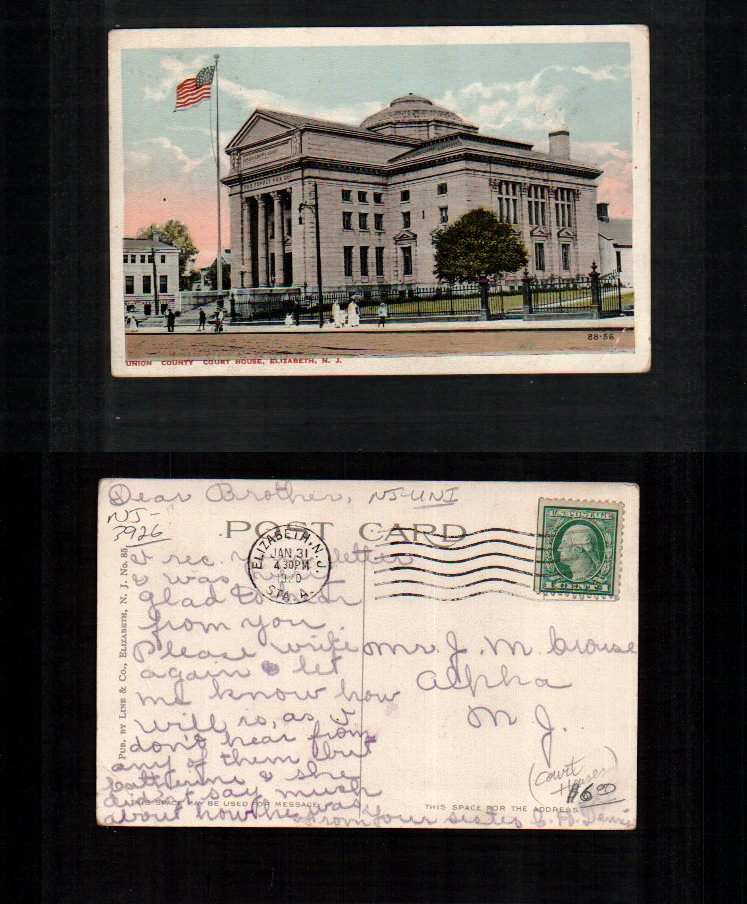 88-56
UNION COUNTY COURT HOUSE, ELIZABETH, N. J.
Dear Brother, NJ-UNI
NJ-
3926
POST CARD
ELIZABETH, N.J.
JAN 31
4 30PM
1920
STA. A.
U.S. POSTAGE
I rec. letter
& was
glad to hear
from you.
Please write
again & let
me know how
will is, as I
don't hear from
any of them but
& she
didn't say much
about how he was
from your sister C. H.
Mr. J. M. Crouse
Alpha
N. J.
(Court
Houses)
$6.00
PUB. BY LINE & CO., ELIZABETH, N. J. No. 85.
THIS SPACE MAY BE USED FOR MESSAGE
THIS SPACE FOR THE ADDRESS